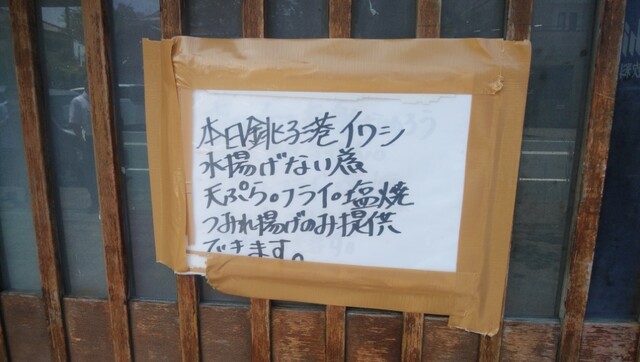 本日銚子港イワシ
水揚げない為
天ぷら。フライ。塩焼
つみれ揚げのみ提供
できます。